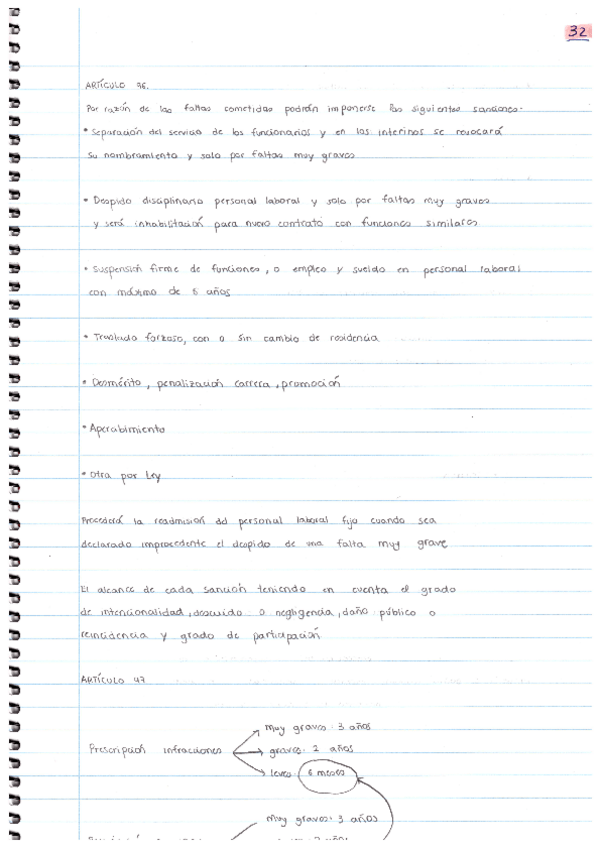 32
ARTÍCULO 96.
Por razón de las faltas cometidas podrán imponerse las siguientes sanciones.
• Separación del servicio de los funcionarios y en los interinos se revocará
su nombramiento y solo por faltas muy graves
• Despido disciplinario personal laboral y solo por faltas muy graves
y será inhabilitación para nuevo contrato con funciones similares
• Suspensión firme de funciones, o empleo y sueldo en personal laboral
con máximo de 6 años
• Traslado forzoso, con o sin cambio de residencia
• Demérito, penalización carrera, promoción
• Apercibimiento
• Otra por Ley
Procederá la readmisión del personal laboral fijo cuando sea
declarado improcedente el despido de una falta muy grave
El alcance de cada sanción teniendo en cuenta el grado
de intencionalidad, descuido o negligencia, daño público o
reincidencia y grado de participación
ARTÍCULO 97
muy graves: 3 años
Prescripción infracciones
graves: 2 años
leves: 6 meses
muy graves: 3 años